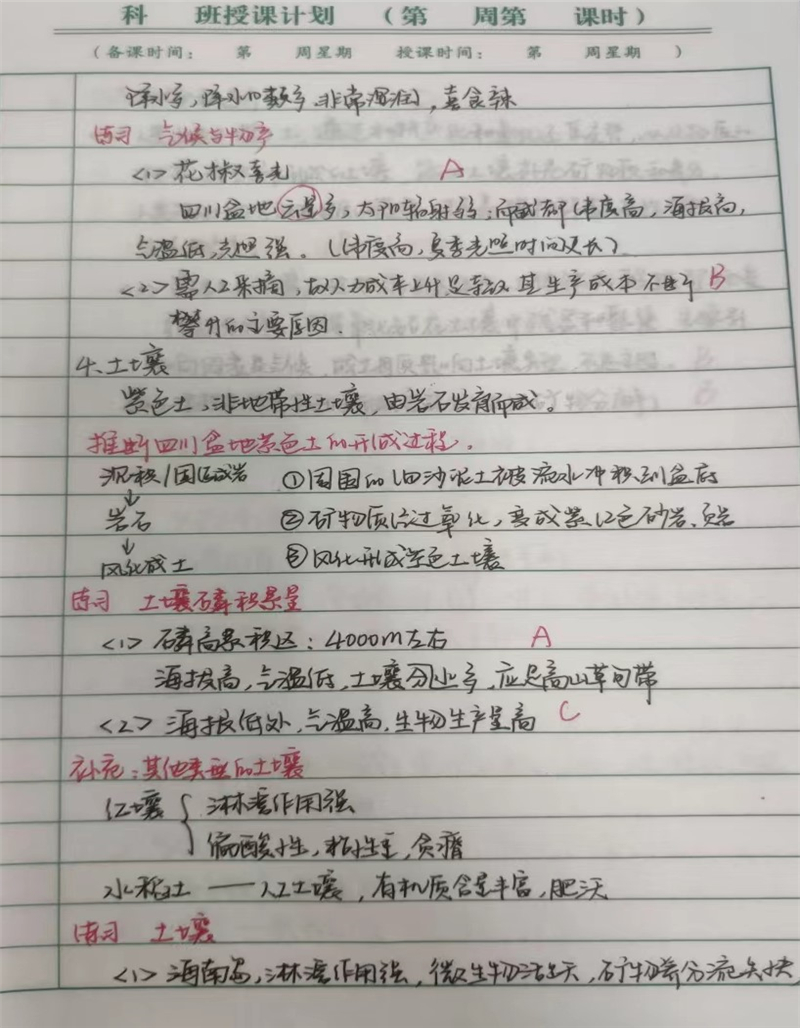 科 班授课计划 （第 周第 课时）
（备课时间： 第 周星期 授课时间： 第 周星期 ）
降水多，降水日数多，非常湿润，喜食辣
练习 气候与物产
<1> 花椒喜光 A
四川盆地云量多，太阳辐射弱；而成都纬度高，海拔高，
气温低，光照强。（纬度高，夏季光照时间更长）
<2> 需人工采摘，故人力成本上升是导致其生产成本不断 B
攀升的主要原因．
4、土壤
紫色土，非地带性土壤，由岩石发育而成。
推断四川盆地紫色土的形成过程．
沉积/固结成岩 ①周围的 泥沙泥土被流水冲积到盆底
↓
岩石 ②矿物质经过氧化，变成紫红色砂岩、页岩
↓
风化成土 ③风化形成紫色土壤
练习 土壤磷积累量
<1> 磷高累积区：4000m左右 A
海拔高，气温低，土壤分解少，应是高山草甸带
<2> 海拔低处，气温高，生物生产量高 C
补充：其他类型的土壤
红壤 { 淋溶作用强
偏酸性，粘性重，贫瘠
水稻土 —— 人工土壤，有机质含量丰富，肥沃
练习 土壤
<1> 海南岛，淋溶作用强，微生物活跃，矿物养分流失快，